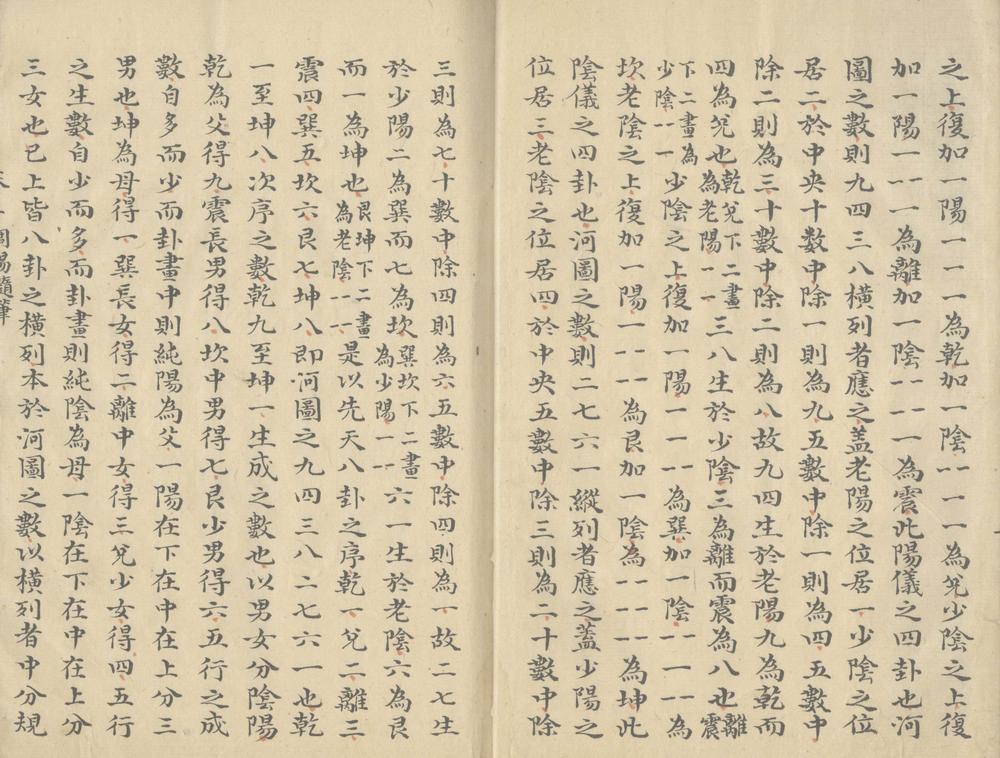 之上復加一陽一一一為乾加一陰--一一為兌少陰之上復
加一陽一--一為離加一陰----一為震此陽儀之四卦也河
圖之數則九四三八橫列者應之蓋老陽之位居一少陰之位
居二於中央十數中除一則為九五數中除一則為四五數中
除二則為三十數中除二則為八故九四生於老陽九為乾而
四為兌也乾兌下二畫為老陽一一三八生於少陰三為離而震為八也離震
下二畫為少陰--一少陰之上復加一陽一一--為巽加一陰--一--為
坎老陰之上復加一陽一----為艮加一陰為------為坤此
陰儀之四卦也河圖之數則二七六一縱列者應之蓋少陽之
位居三老陰之位居四於中央五數中除三則為二十數中除
三則為七十數中除四則為六五數中除四則為一故二七生
於少陽二為巽而七為坎巽坎下二畫為少陽一--六一生於老陰六為艮
而一為坤也艮坤下二畫為老陰----是以先天八卦之序乾一兌二離三
震四巽五坎六艮七坤八即河圖之九四三八二七六一也乾
一至坤八次序之數乾九至坤一生成之數也以男女分陰陽
乾為父得九震長男得八坎中男得七艮少男得六五行之成
數自多而少而卦畫中則純陽為父一陽在下在中在上分三
男也坤為母得一巽長女得二離中女得三兌少女得四五行
之生數自少而多而卦畫則純陰為母一陰在下在中在上分
三女也已上皆八卦之橫列本於河圖之數以橫列者中分規